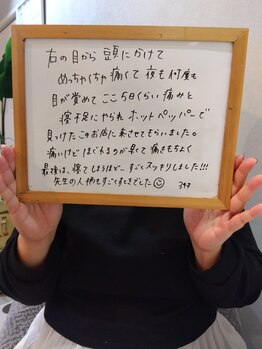 右の目から 頭にかけて
めっちゃくちゃ痛くて 夜も何度も
目が覚めて ここ5日くらい 痛みと
寝不足にやられ ホットペッパーで
見つけた このお店に 来させてもらいました。
痛いけど ほぐれるのが 早くて 痛きもちよく
最後は、寝てしまうほど… すごくスッキリしました!!!
先生の人柄もすごくすてきでした☺